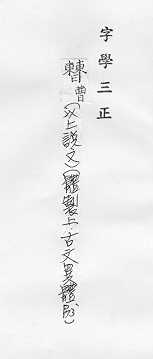 字學三正
曹(以上說文)(體製上·古文異體)